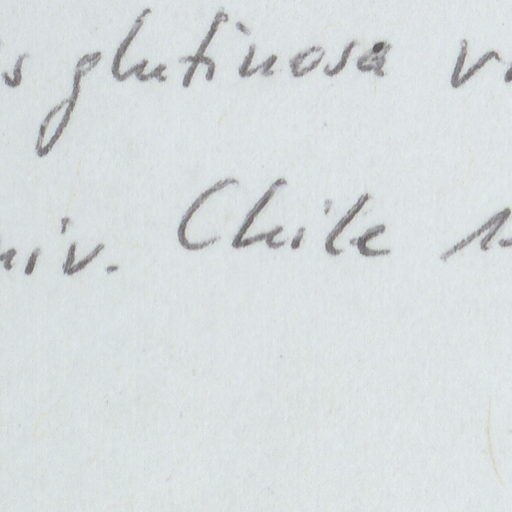 s glutinosa v
niv. Chile 1